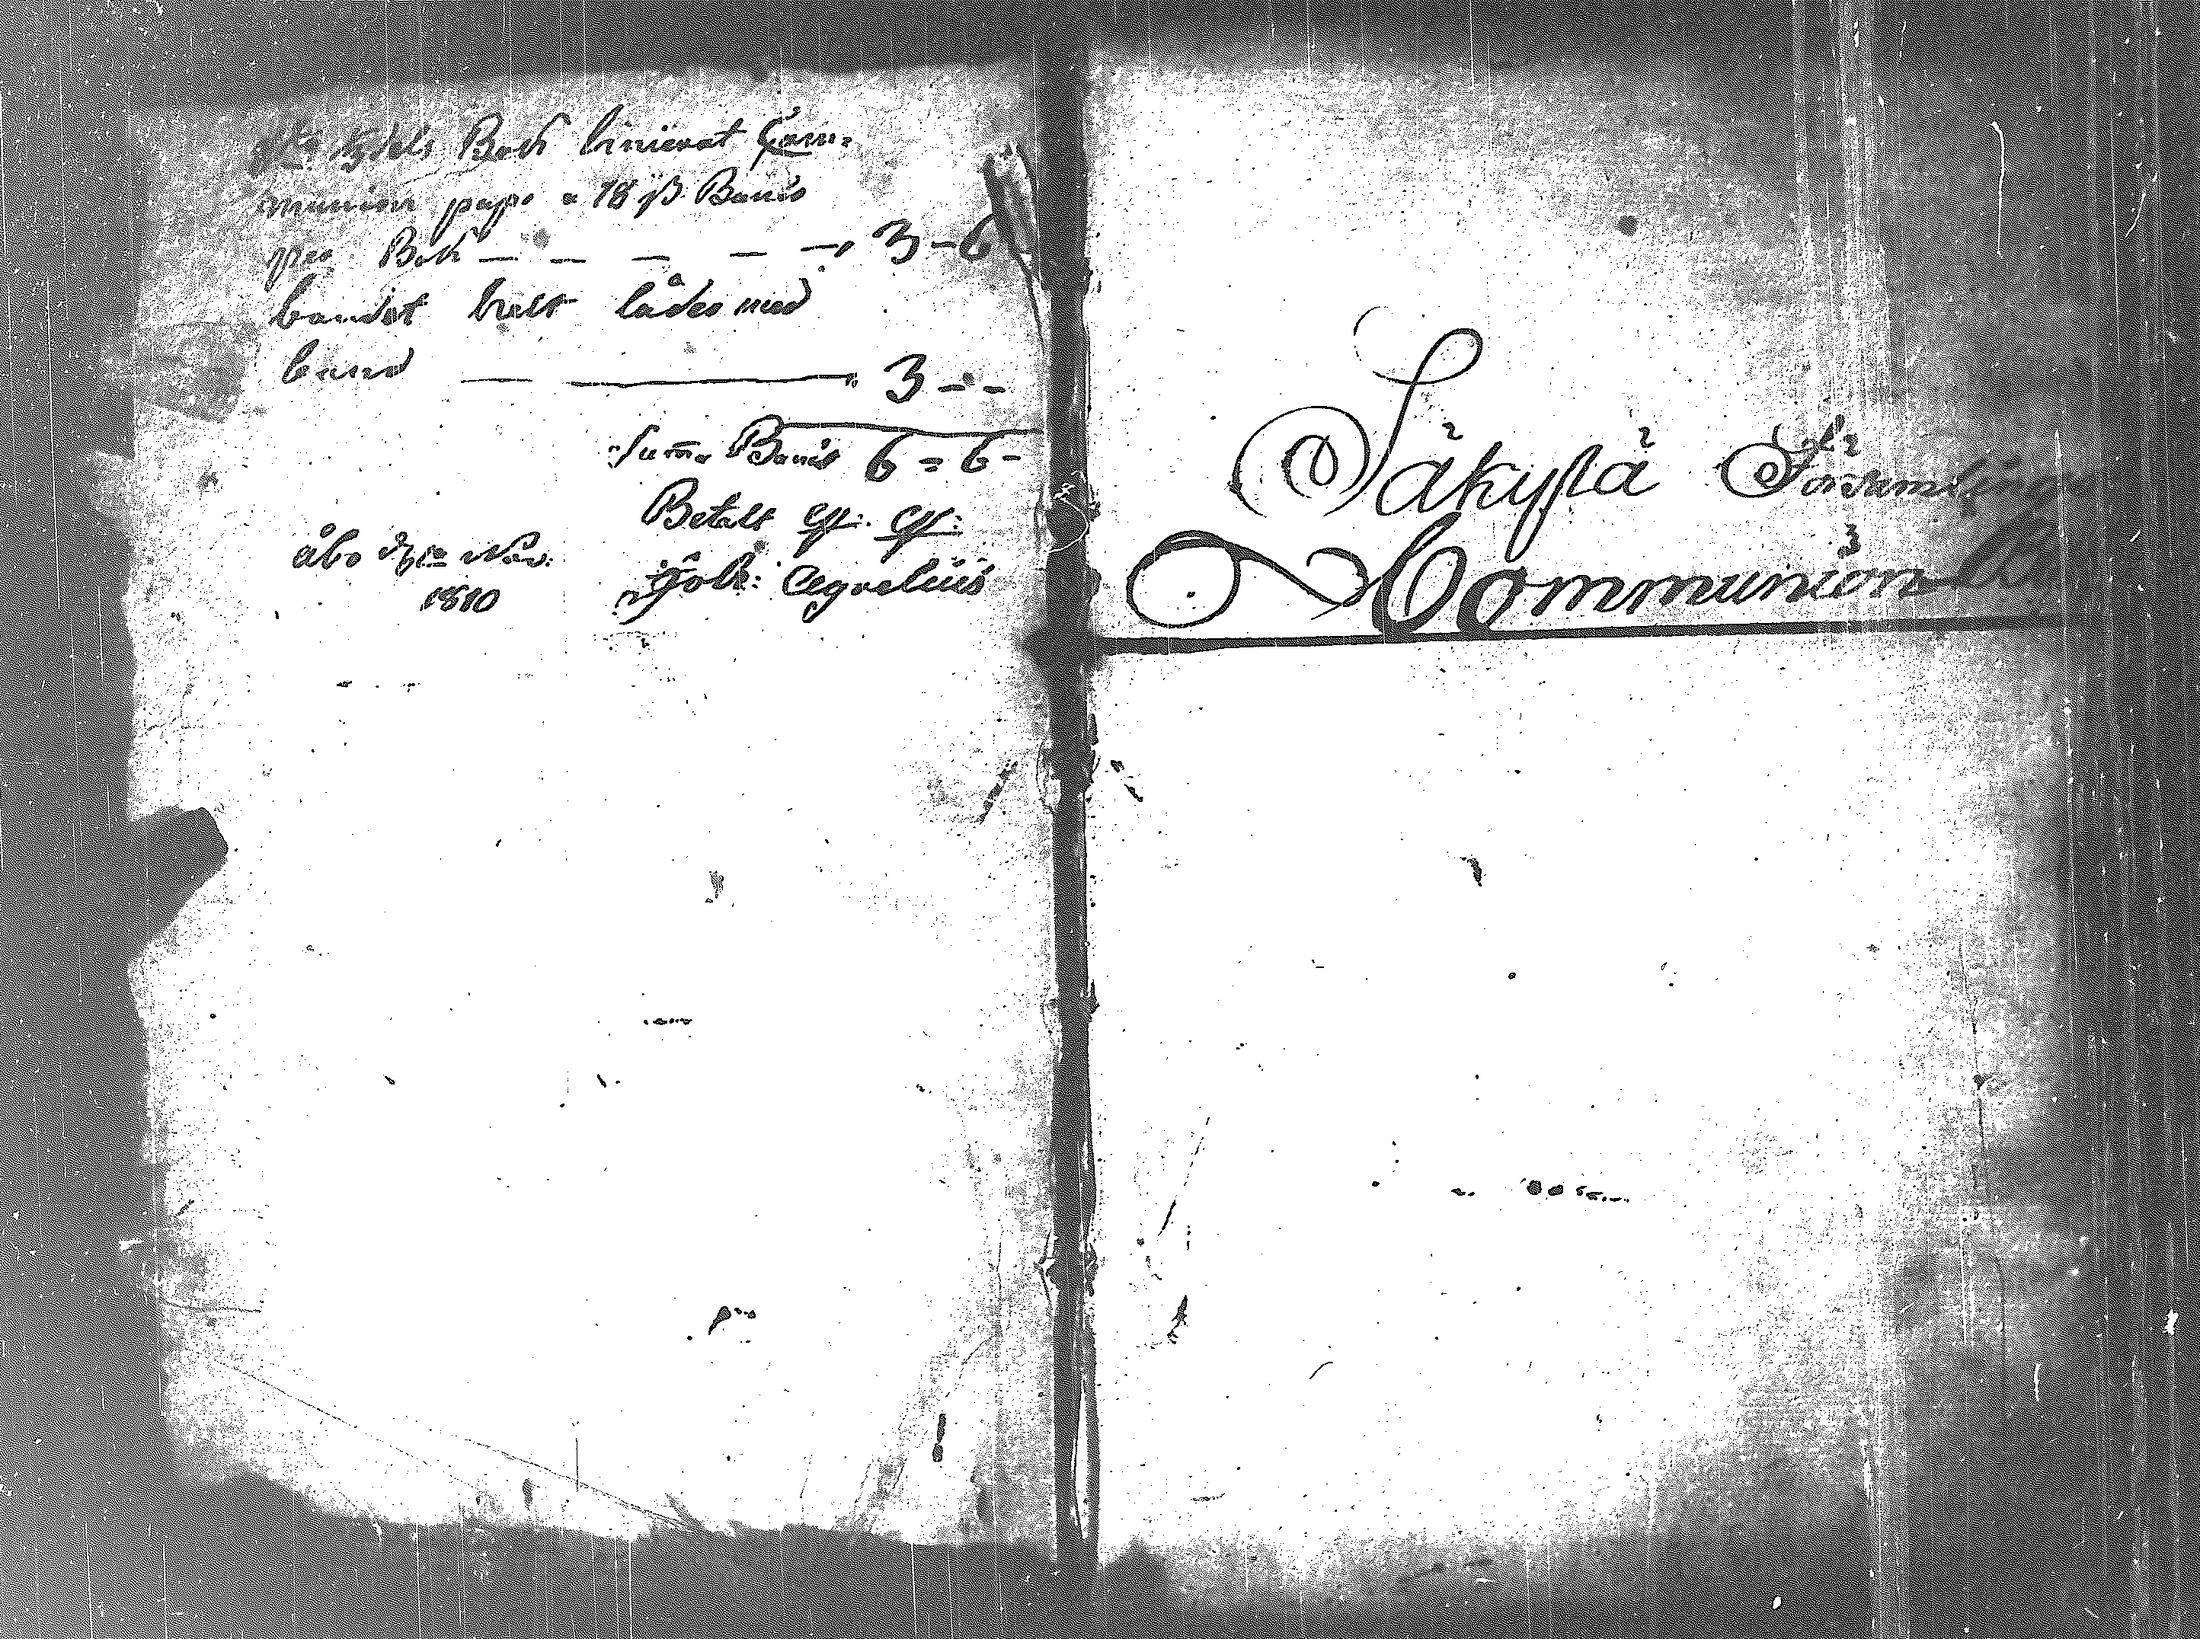 dels Bok linierat Com-
munion pap. a 18 β Banco
per Bok — — — — — 3 - 6
bandet helt läder med
band — — 3 - -
Summa Banco 6 = 6 -
Betalt
Åbo d Nov:
1810
Joh: Cegrelius
Säkylä Församlings
Communion